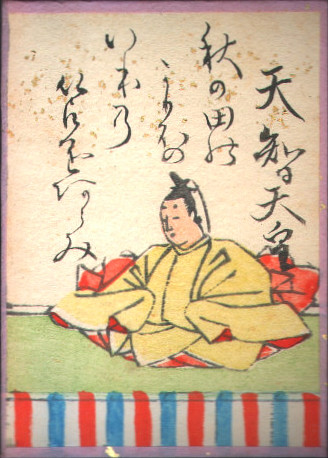 天智天皇
秋の田の
かりほの
いほ乃
とまをあらみ